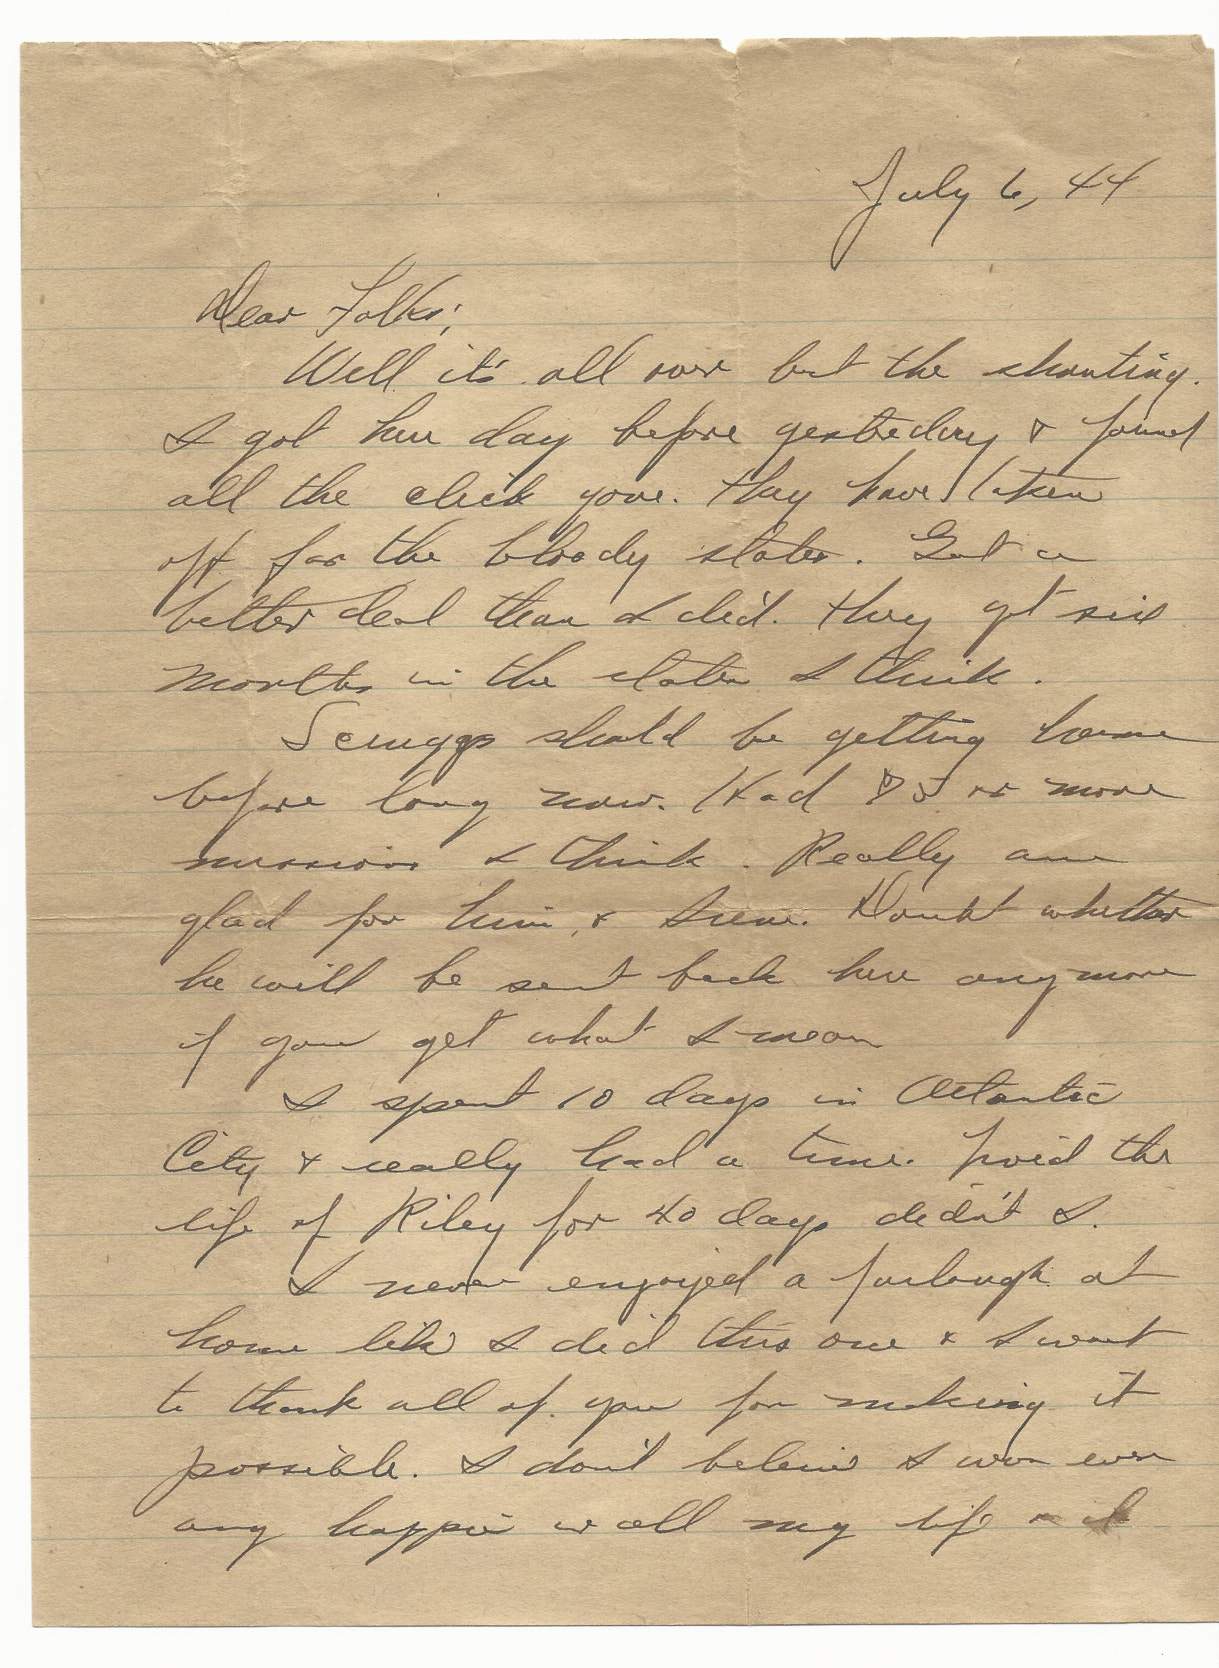 July 6, 44
Dear Folks;
Well it's all over but the shouting.
I got here day before yesterday & found
all the click gone. They have taken
off for the bloody states. Got a
better deal than I did. They get six
months in the states I think.
Scruggs should be getting home
before long now. Had or more
missions I think. Really am
glad for him & Irene. Doubt whether
he will be sent back here anymore
if you get what I mean
I spent 10 days in Atlantic
City & really had a time. Lived the
life of Riley for 40 days didn't I.
I never enjoyed a furlough at
home like I did this one & I want
to thank all of you for making it
possible. I don't believe I was ever
any happier in all my life &